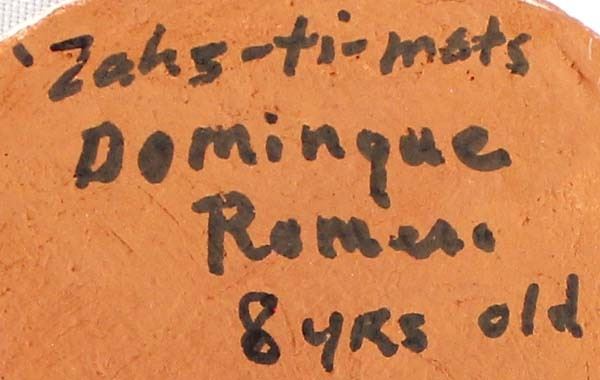 'Zahs-ti-mats
Dominque
Romero
8 yrs old